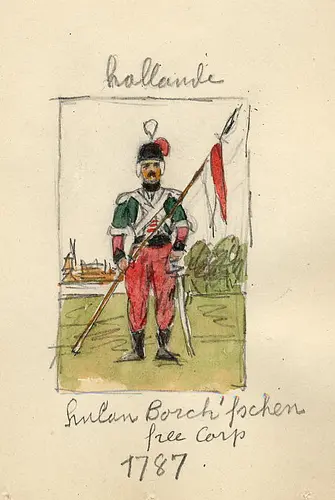 hollande
hulan Borch'schen
free Corp
1787.